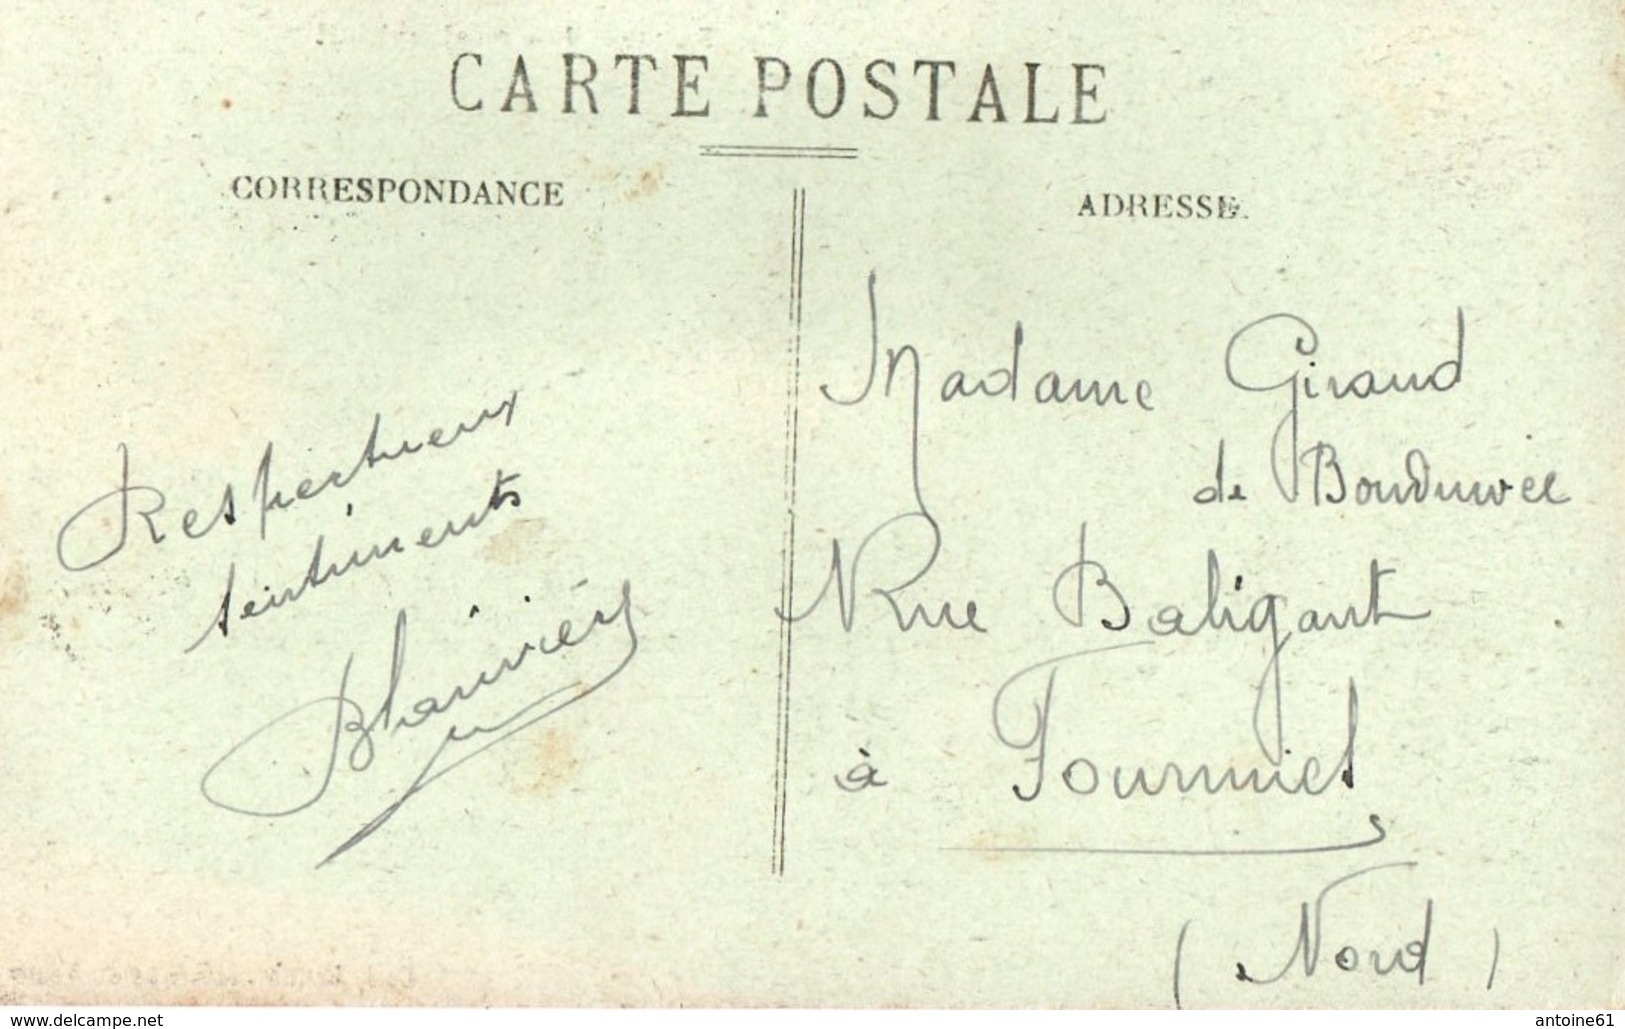 CARTE POSTALE
CORRESPONDANCE
ADRESSE.
Respectueux
sentiments
Madame Giraud
de
Rue Baligant
à Fourmies
(Nord)
www.delcampe.net
antoine61